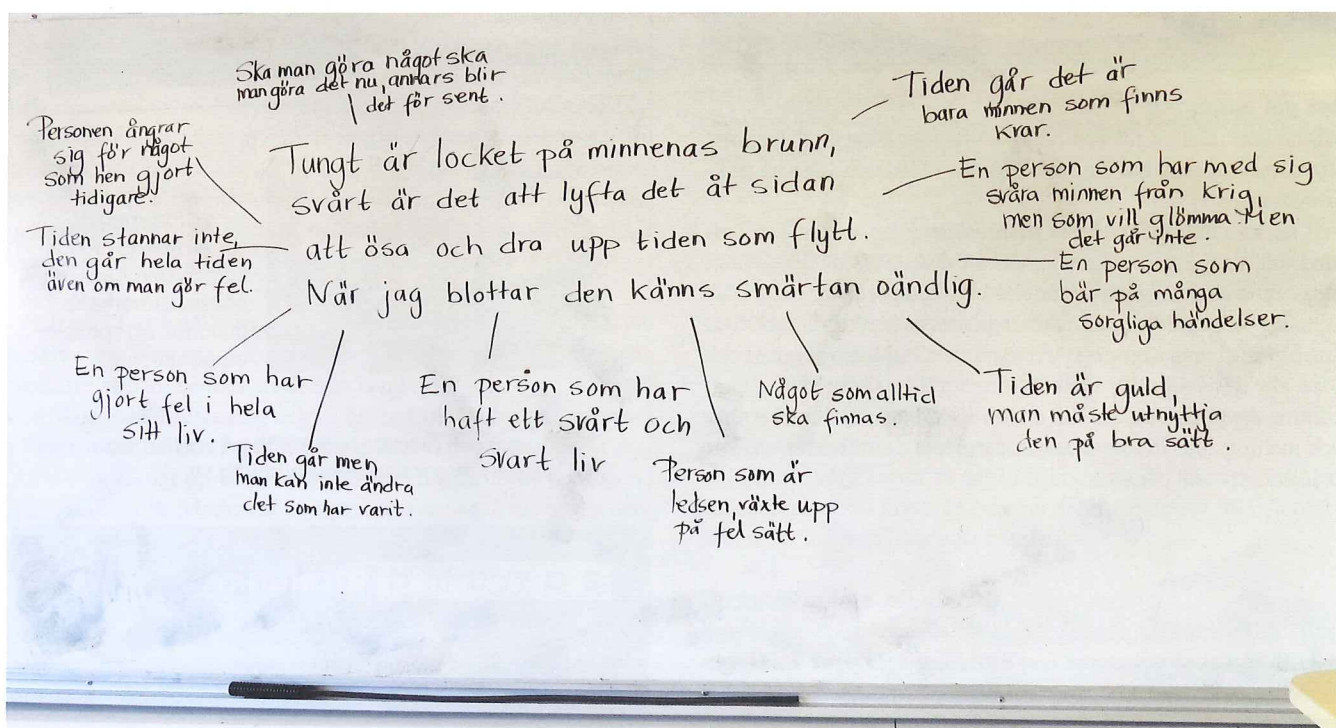 Ska man göra något ska
man göra det nu, annars blir
det för sent.
Tiden går det är
bara minnen som finns
krar.
Personen ångrar
sig för något
som hen gjort
tidigare.
Tungt är locket på minnenas brunn,
svårt är det att lyfta det åt sidan
att ösa och dra upp tiden som flytt.
När jag blottar den känns smärtan oändlig.
En person som har med sig
svåra minnen från krig,
men som vill glömma. Men
det går inte.
Tiden stannar inte,
den går hela tiden
även om man gör fel.
En person som
bär på många
sorgliga händelser.
En person som har
gjort fel i hela
sitt liv.
Tiden går men
man kan inte ändra
det som har varit.
En person som har
haft ett svårt och
svart liv
Person som är
ledsen, växte upp
på fel sätt.
Något som alltid
ska finnas.
Tiden är guld,
man måste utnyttja
den på bra sätt.